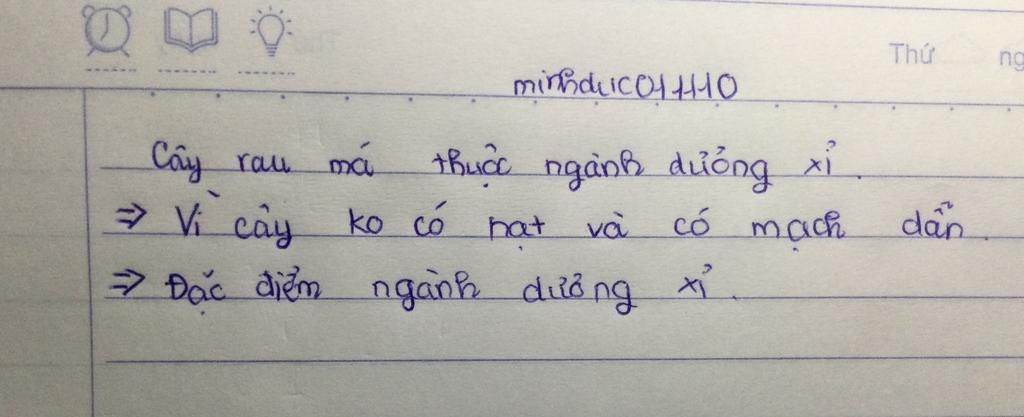 Thứ ng
minhduc011110
Cây rau má thuộc ngành dưởng xỉ.
⇒ Vì cây ko có hạt và có mạch dẫn.
⇒ Đặc điểm ngành dưởng xỉ.